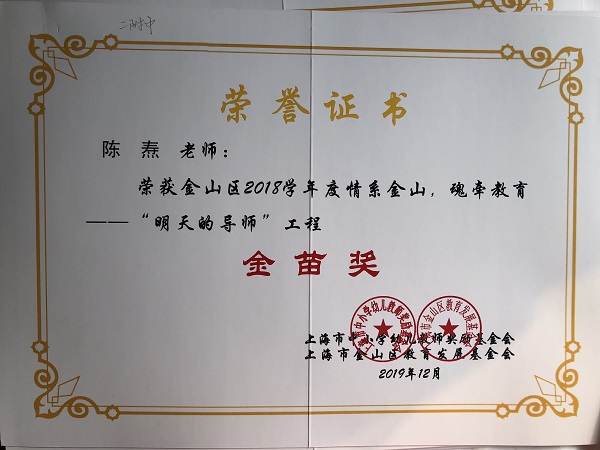 二附中
荣誉证书
陈 焘 老师：
荣获金山区2018学年度情系金山，魂牵教育
——“明天的导师”工程
金苗奖
上海市中小学幼儿教师奖励基金会
上海市金山区教育发展基金会
2019年12月